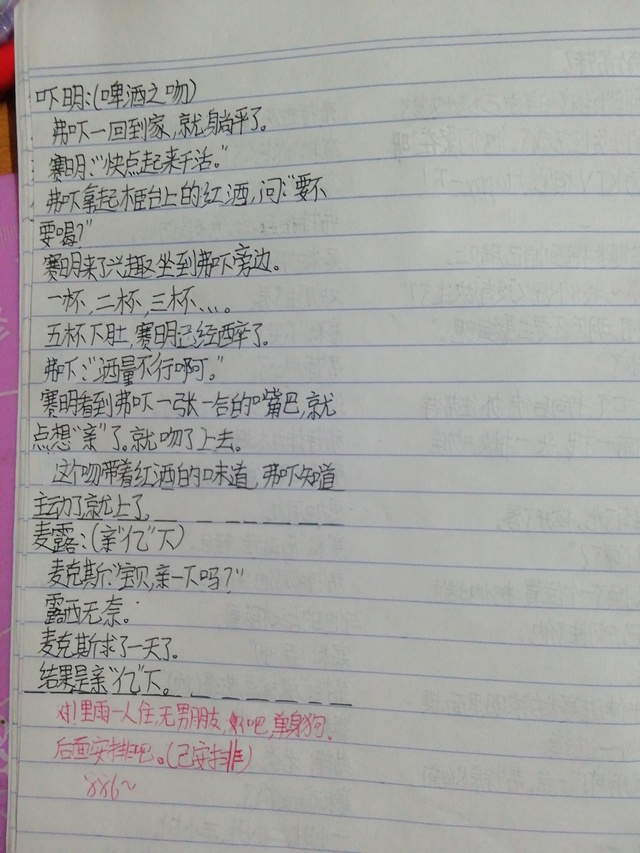 吓明:(啤酒之吻)
弗吓一回到家,就躺平了。
赛明:"快点起来干活。"
弗吓拿起柜台上的红酒,问:"要不
要喝?"
赛明来了兴趣,坐到弗吓旁边。
一杯,二杯,三杯、、、。
五杯下肚,赛明已经醉了。
弗吓:"酒量不行啊。"
赛明看到弗吓一张一合的嘴巴,就
点想"亲"了。就吻了上去。
这个吻带着红酒的味道,弗吓知道
主动了就上了。
麦露:(亲"亿"下)
麦克斯:"宝贝,亲一下吗?"
露西无奈。
麦克斯求了一天了。
结果是亲"亿"下。
对!里雨一人住,无男朋友,好吧,单身狗。
后面安排吧。(已安排)
886~